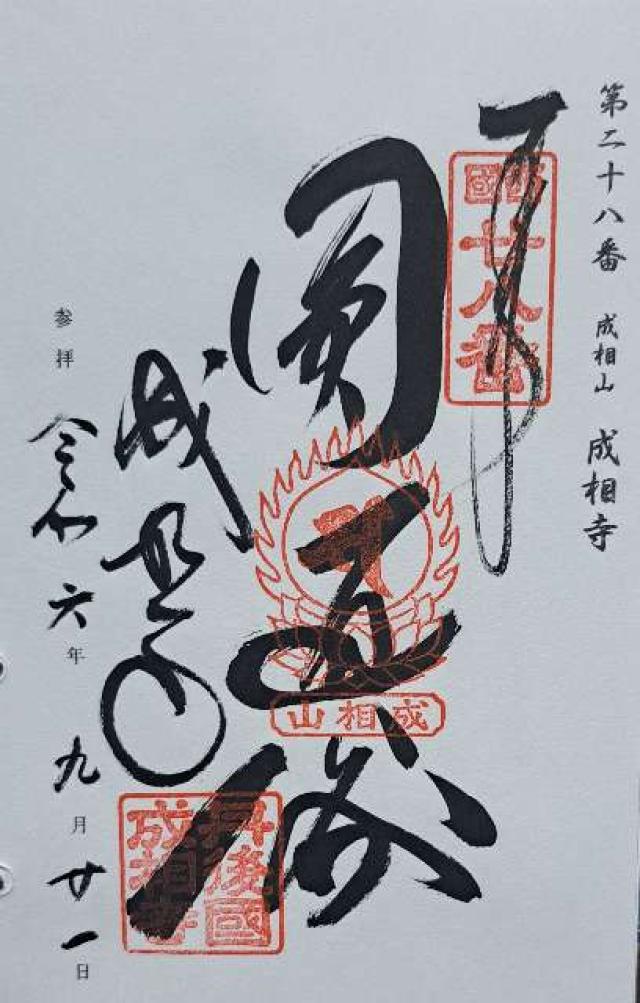 第二十八番 成相山 成相寺
西國廿八番
奉拝
圓通殿
成相山
成相寺
丹後國成相寺
参拝 令和六年九月廿一日